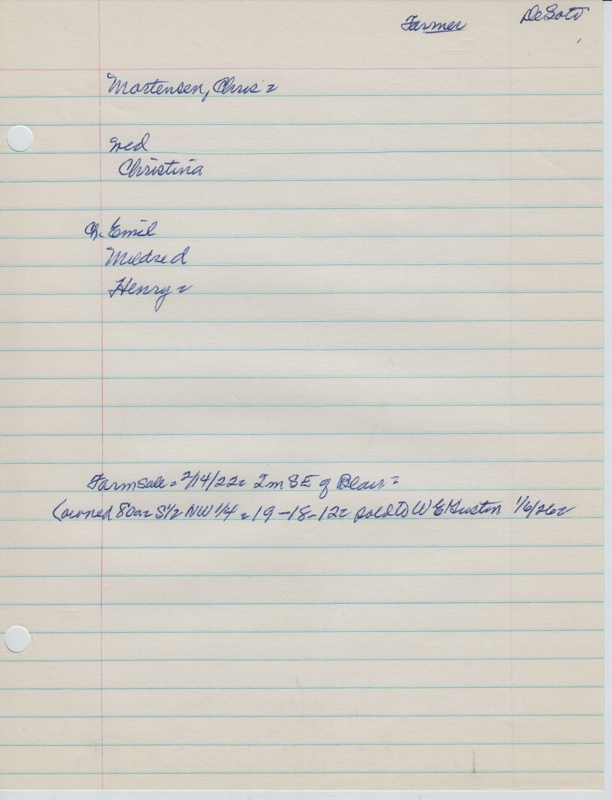 Farmer DeSoto
Mortensen, Chris =
wed
Christina
Ch. Emil
Mildred
Henry =
Farm Sale = 2/14/22 = 2 m SE of Blair =
(owned 80a = S 1/2 NW 1/4 = 19-18-12 = sold to W E 1/6/26 =